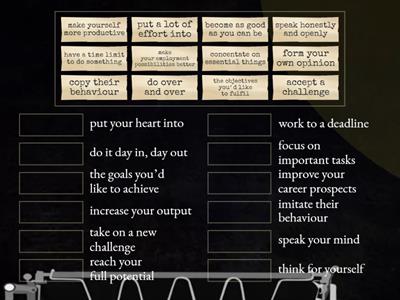 make yourself
more productive
put a lot of
effort into
become as good
as you can be
speak honestly
and openly
have a time limit
to do something
make
your employment
possibilities better
concentate on
essential things
form your
own opinion
copy their
behaviour
do over
and over
the objectives
you'd like
to fulfil
accept a
challenge
put your heart into
do it day in, day out
the goals you'd
like to achieve
increase your output
take on a new
challenge
reach your
full potential
work to a deadline
focus on
important tasks
improve your
career prospects
imitate their
behaviour
speak your mind
think for yourself